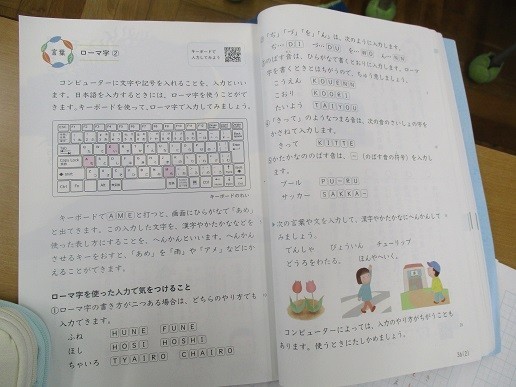 言葉
ローマ字②
キーボードで
入力してみよう
コンピューターに文字や記号を入れることを、入力といい
ます。日本語を入力するときには、ローマ字を使うことがで
きます。キーボードを使って、ローマ字で入力してみましょう。
キーボードのれい
キーボードでAMEと打つと、画面にひらがなで「あめ」
と出てきます。この入力した文字を、漢字やかたかななどを
使った表し方にすることを、へんかんといいます。へんかん
させるキーをおすと、「あめ」を「雨」や「アメ」などにか
えることができます。
ローマ字を使った入力で気をつけること
①ローマ字の書き方が二つある場合は、どちらのやり方でも
入力できます。
ふね HUNE FUNE
ほし HOSI HOSHI
ちゃいろ TYAIRO CHAIRO
②「ぢ」「づ」「を」「ん」は、次のように入力します。
ぢ…DI づ…DU を…WO ん…NN
のばす音は、ひらがなで書くとおりに入力します。ローマ
字を書くときとはちがうので、ちゅう意しましょう。
こうえん KOUENN
こおり KOORI
たいよう TAIYOU
「きって」のようなつまる音は、次の音のさいしょの字を
かさねて入力します。
きって KITTE
かたかなののばす音は、ー(のばす音の符号)を入力し
ます。
プール PU-RU
サッカー SAKKA-
次の言葉や文を入力して、漢字やかたかなにへんかんして
みましょう。
でんしゃ びょういん チューリップ
どうろをわたる。 ほんやへいく。
コンピューターによっては、入力のやり方がちがうことも
あります。使うときにたしかめましょう。